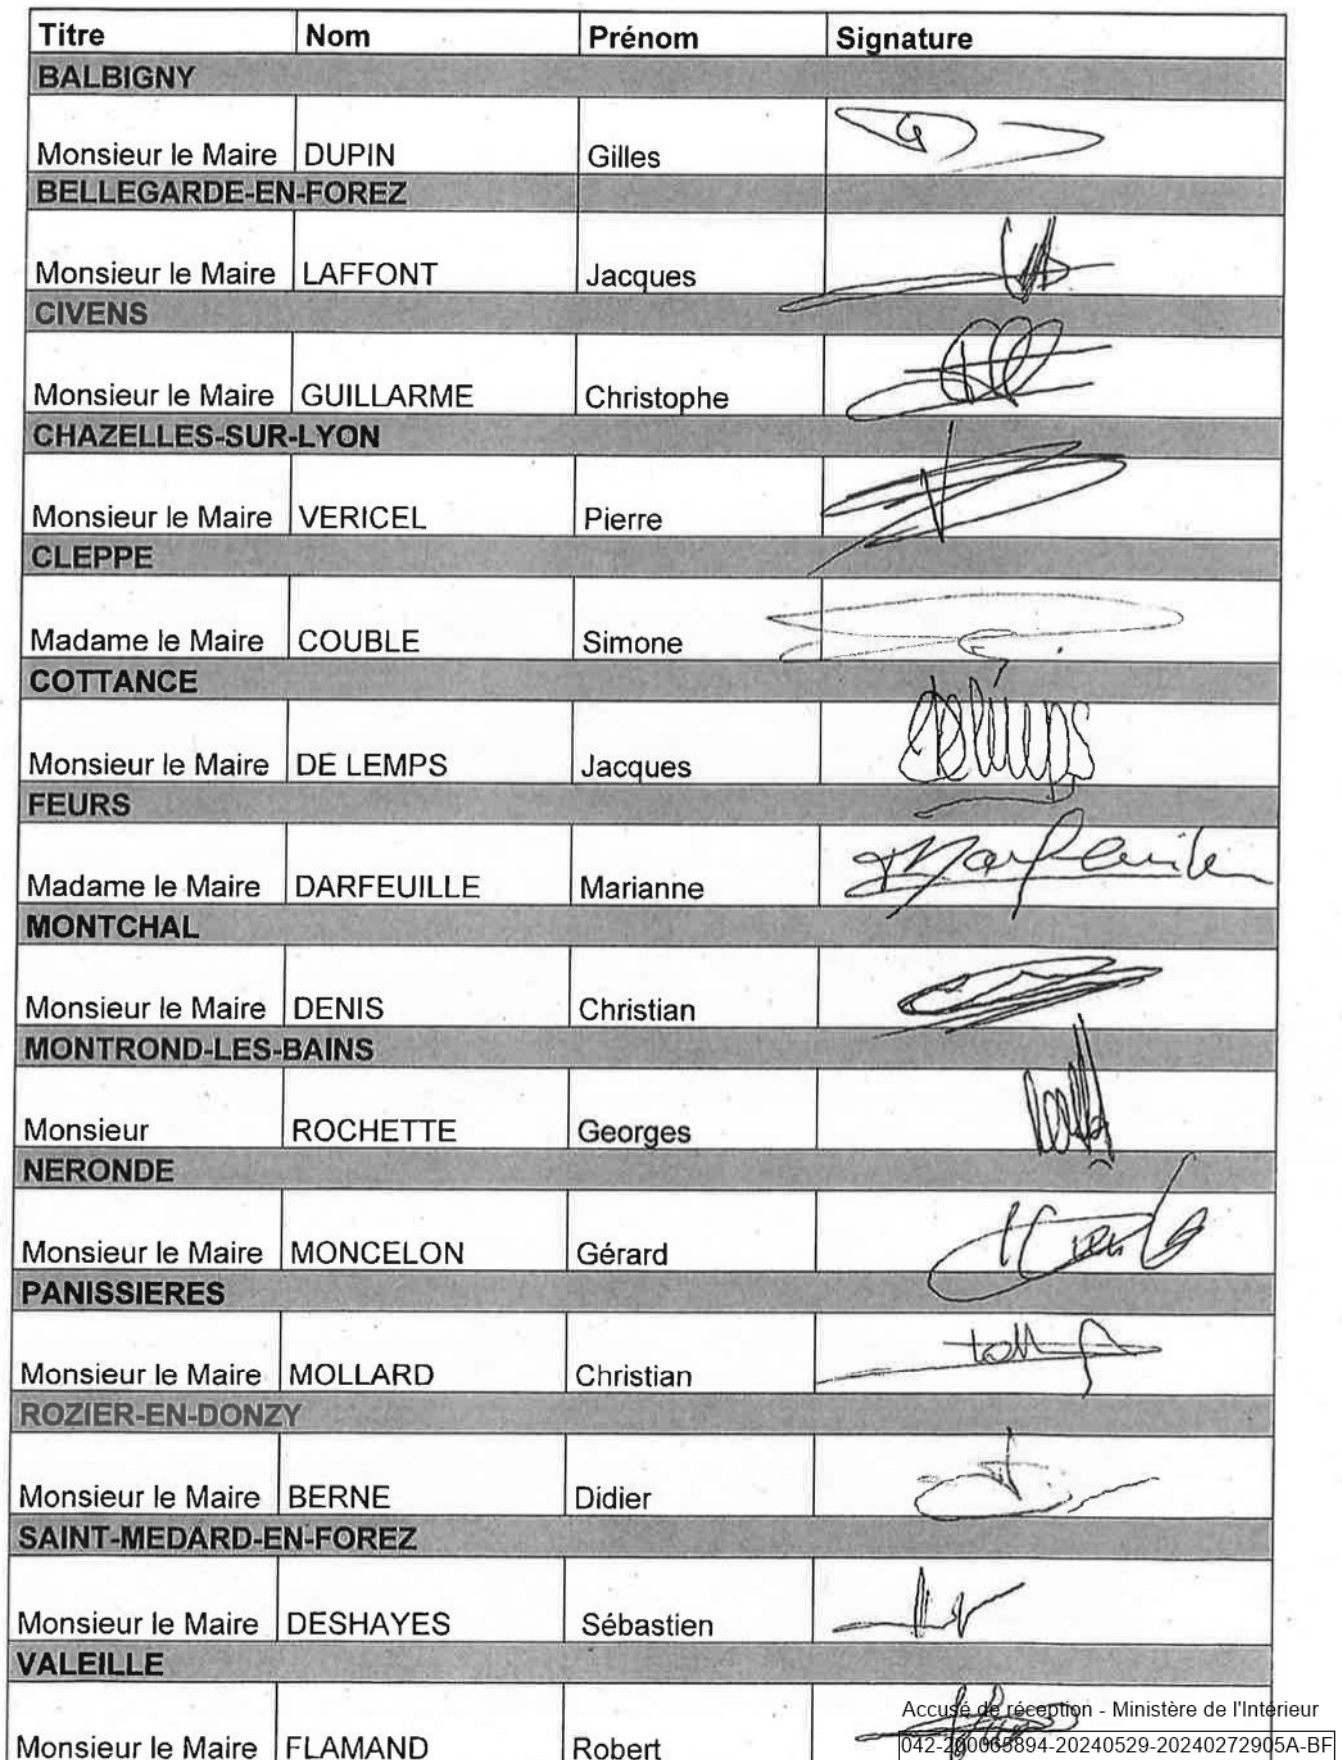 Titre Nom Prénom Signature
BALBIGNY
Monsieur le Maire DUPIN Gilles
BELLEGARDE-EN-FOREZ
Monsieur le Maire LAFFONT Jacques
CIVENS
Monsieur le Maire GUILLARME Christophe
CHAZELLES-SUR-LYON
Monsieur le Maire VERICEL Pierre
CLEPPE
Madame le Maire COUBLE Simone
COTTANCE
Monsieur le Maire DE LEMPS Jacques
FEURS
Madame le Maire DARFEUILLE Marianne
MONTCHAL
Monsieur le Maire DENIS Christian
MONTROND-LES-BAINS
Monsieur ROCHETTE Georges
NERONDE
Monsieur le Maire MONCELON Gérard
PANISSIERES
Monsieur le Maire MOLLARD Christian
ROZIER-EN-DONZY
Monsieur le Maire BERNE Didier
SAINT-MEDARD-EN-FOREZ
Monsieur le Maire DESHAYES Sébastien
VALEILLE
Accusé de réception - Ministère de l'Intérieur
Monsieur le Maire FLAMAND Robert 042-200065894-20240529-20240272905A-BF